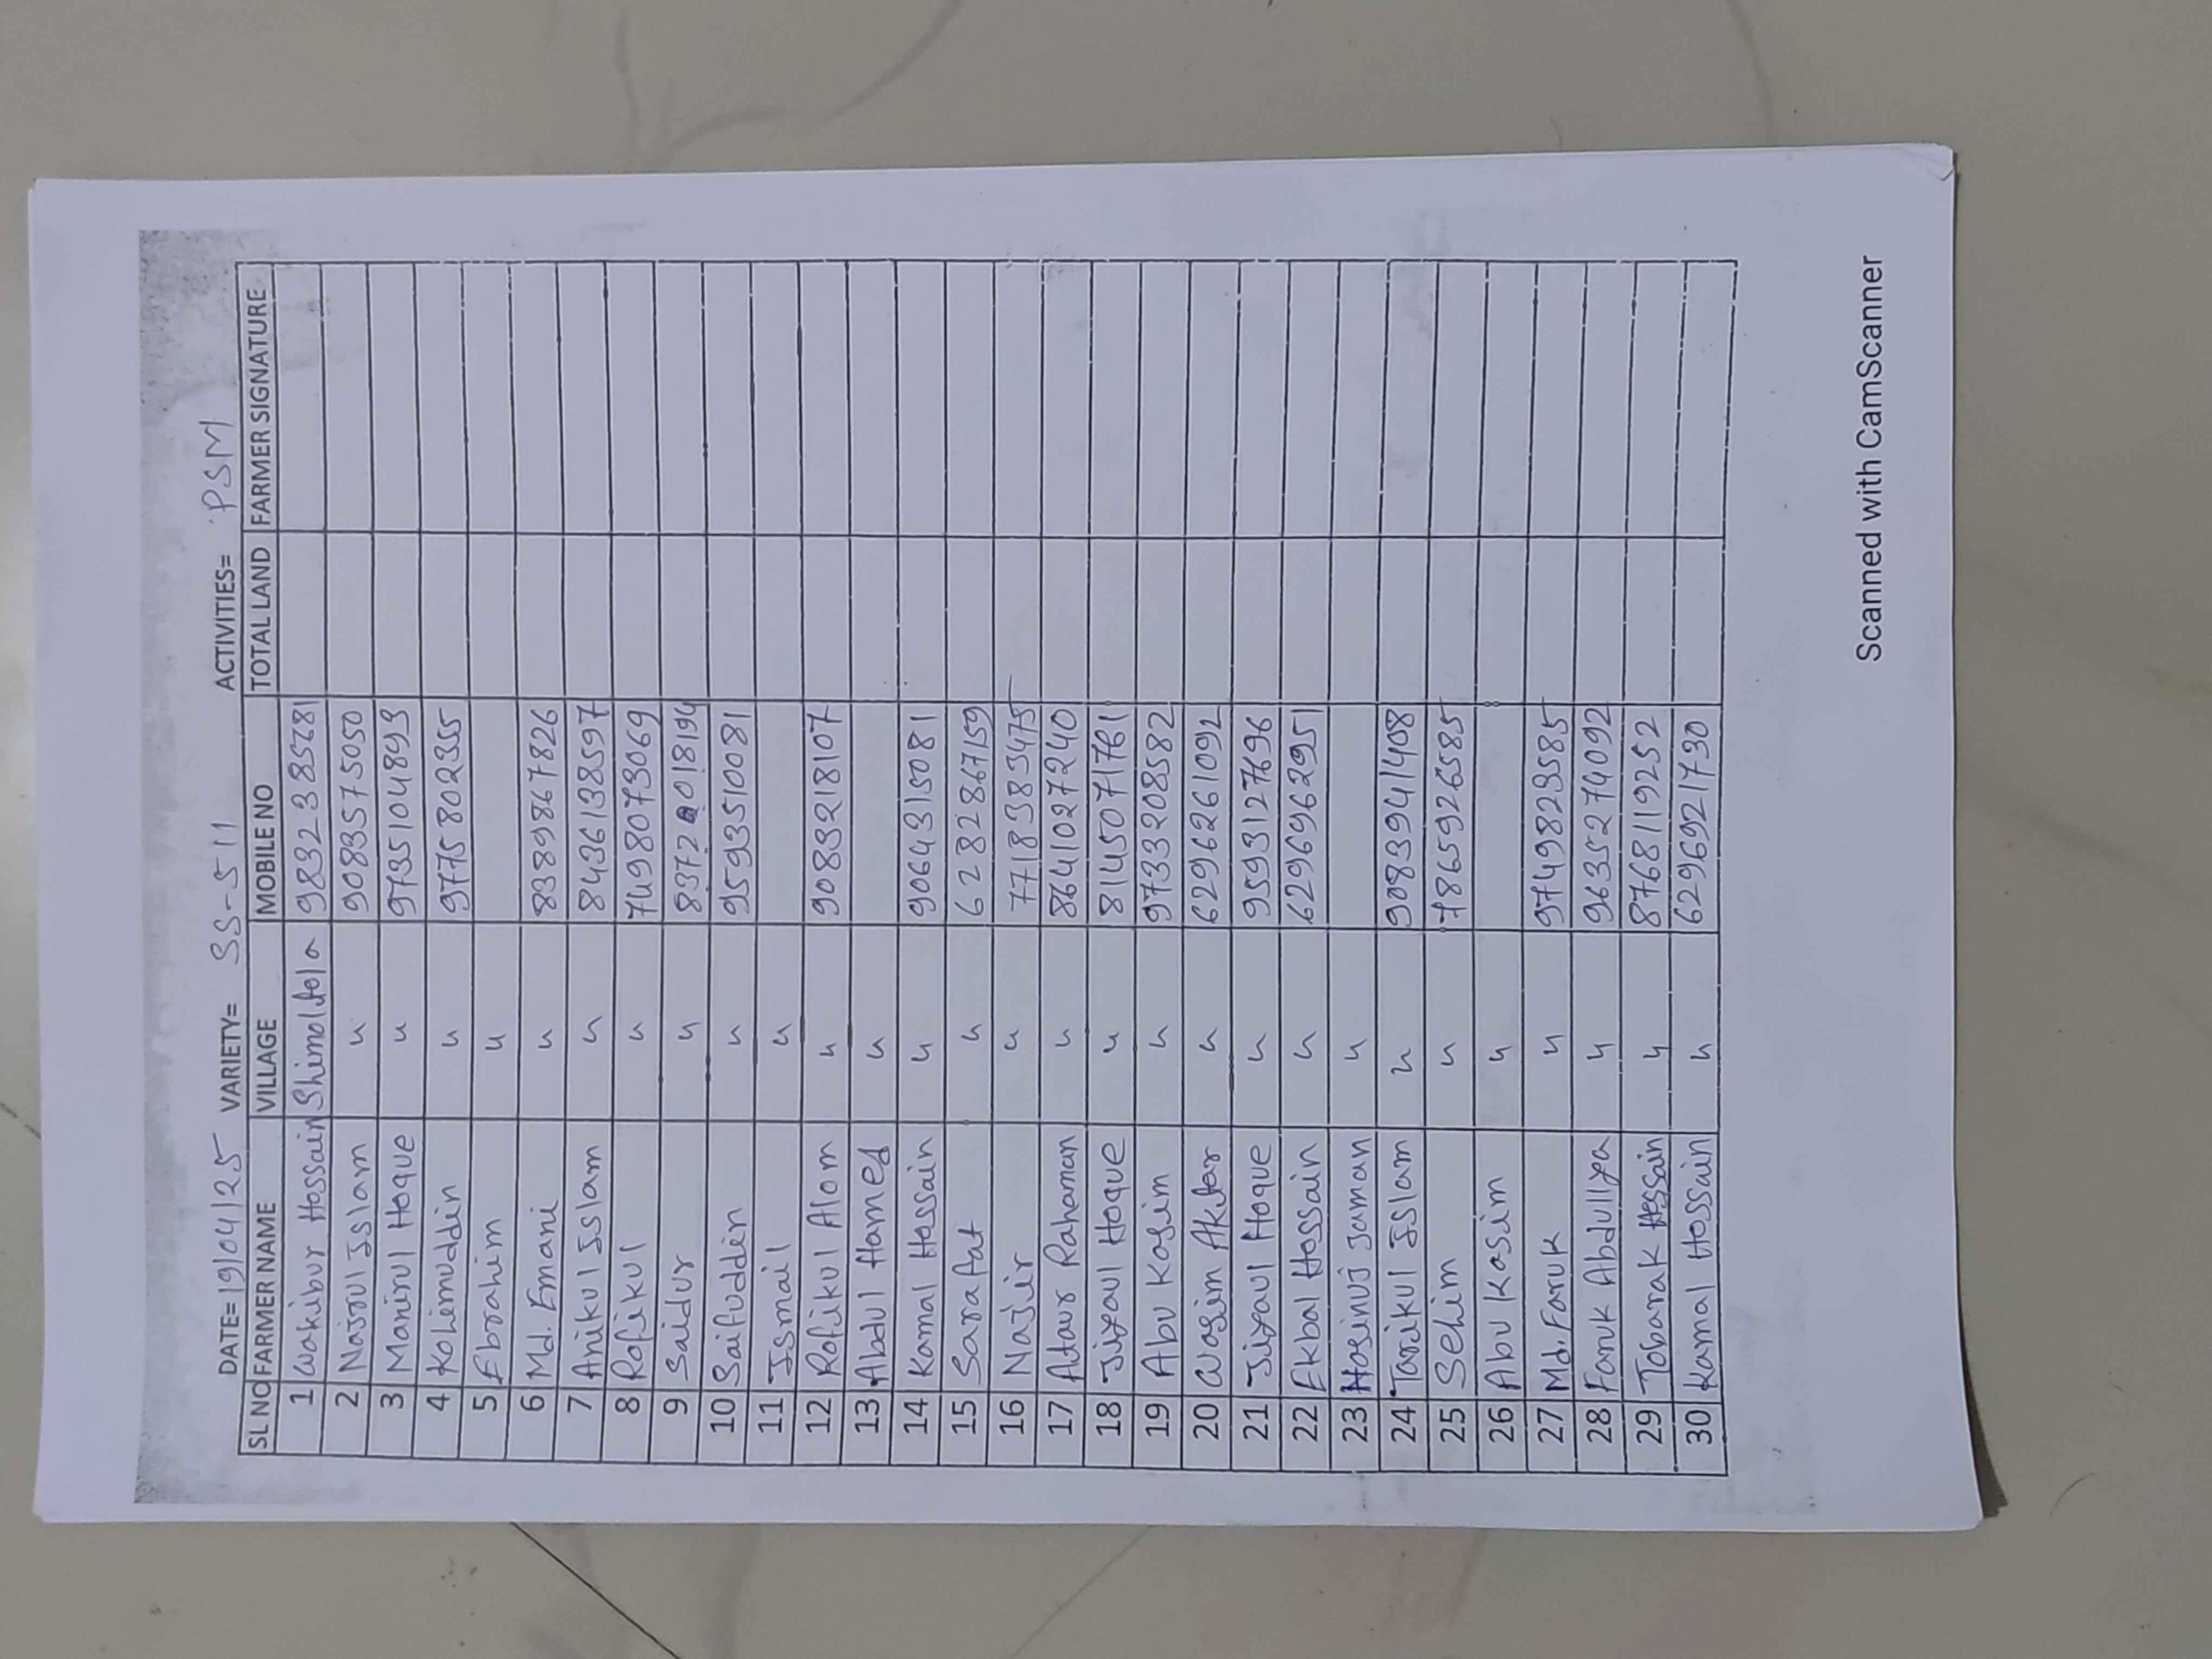 DATE= 19/04/25 VARIETY= SS-511 ACTIVITIES= PSM
SL NO FARMER NAME VILLAGE MOBILE NO TOTAL LAND FARMER SIGNATURE
1 Wakibur Hossain Shimoltola 9832385281
2 Najrul Islam " 9083575050
3 Manirul Hoque " 9735104893
4 Kolimuddin " 9775802355
5 Ebrahim "
6 Md. Emani " 8389867826
7 Anikul Islam " 8436138597
8 Rofikul " 7498073069
9 Saidur " 8372018194
10 Saifuddin " 9593510081
11 Ismail "
12 Rofikul Alom " 9083218107
13 Abdul Hamed "
14 Kamal Hossain " 9064315081
15 Sarafat " 6282867159
16 Najir " 7718383475
17 Ataur Rahaman " 8641027240
18 Jiyaul Hoque " 8145071761
19 Abu Kasim " 9733208582
20 Wasim Aktar " 6296261092
21 Jiyaul Hoque " 9593127696
22 Ekbal Hossain " 6296496295
23 Hosinuj Jaman "
24 Tarikul Islam " 9083941408
25 Sehim " 7865926585
26 Abu Kasim "
27 Md. Faruk " 9749823585
28 Faruk Abdullya " 9635274092
29 Tobarak Hossain " 8768119252
30 Kamal Hossain " 6296921730
Scanned with CamScanner